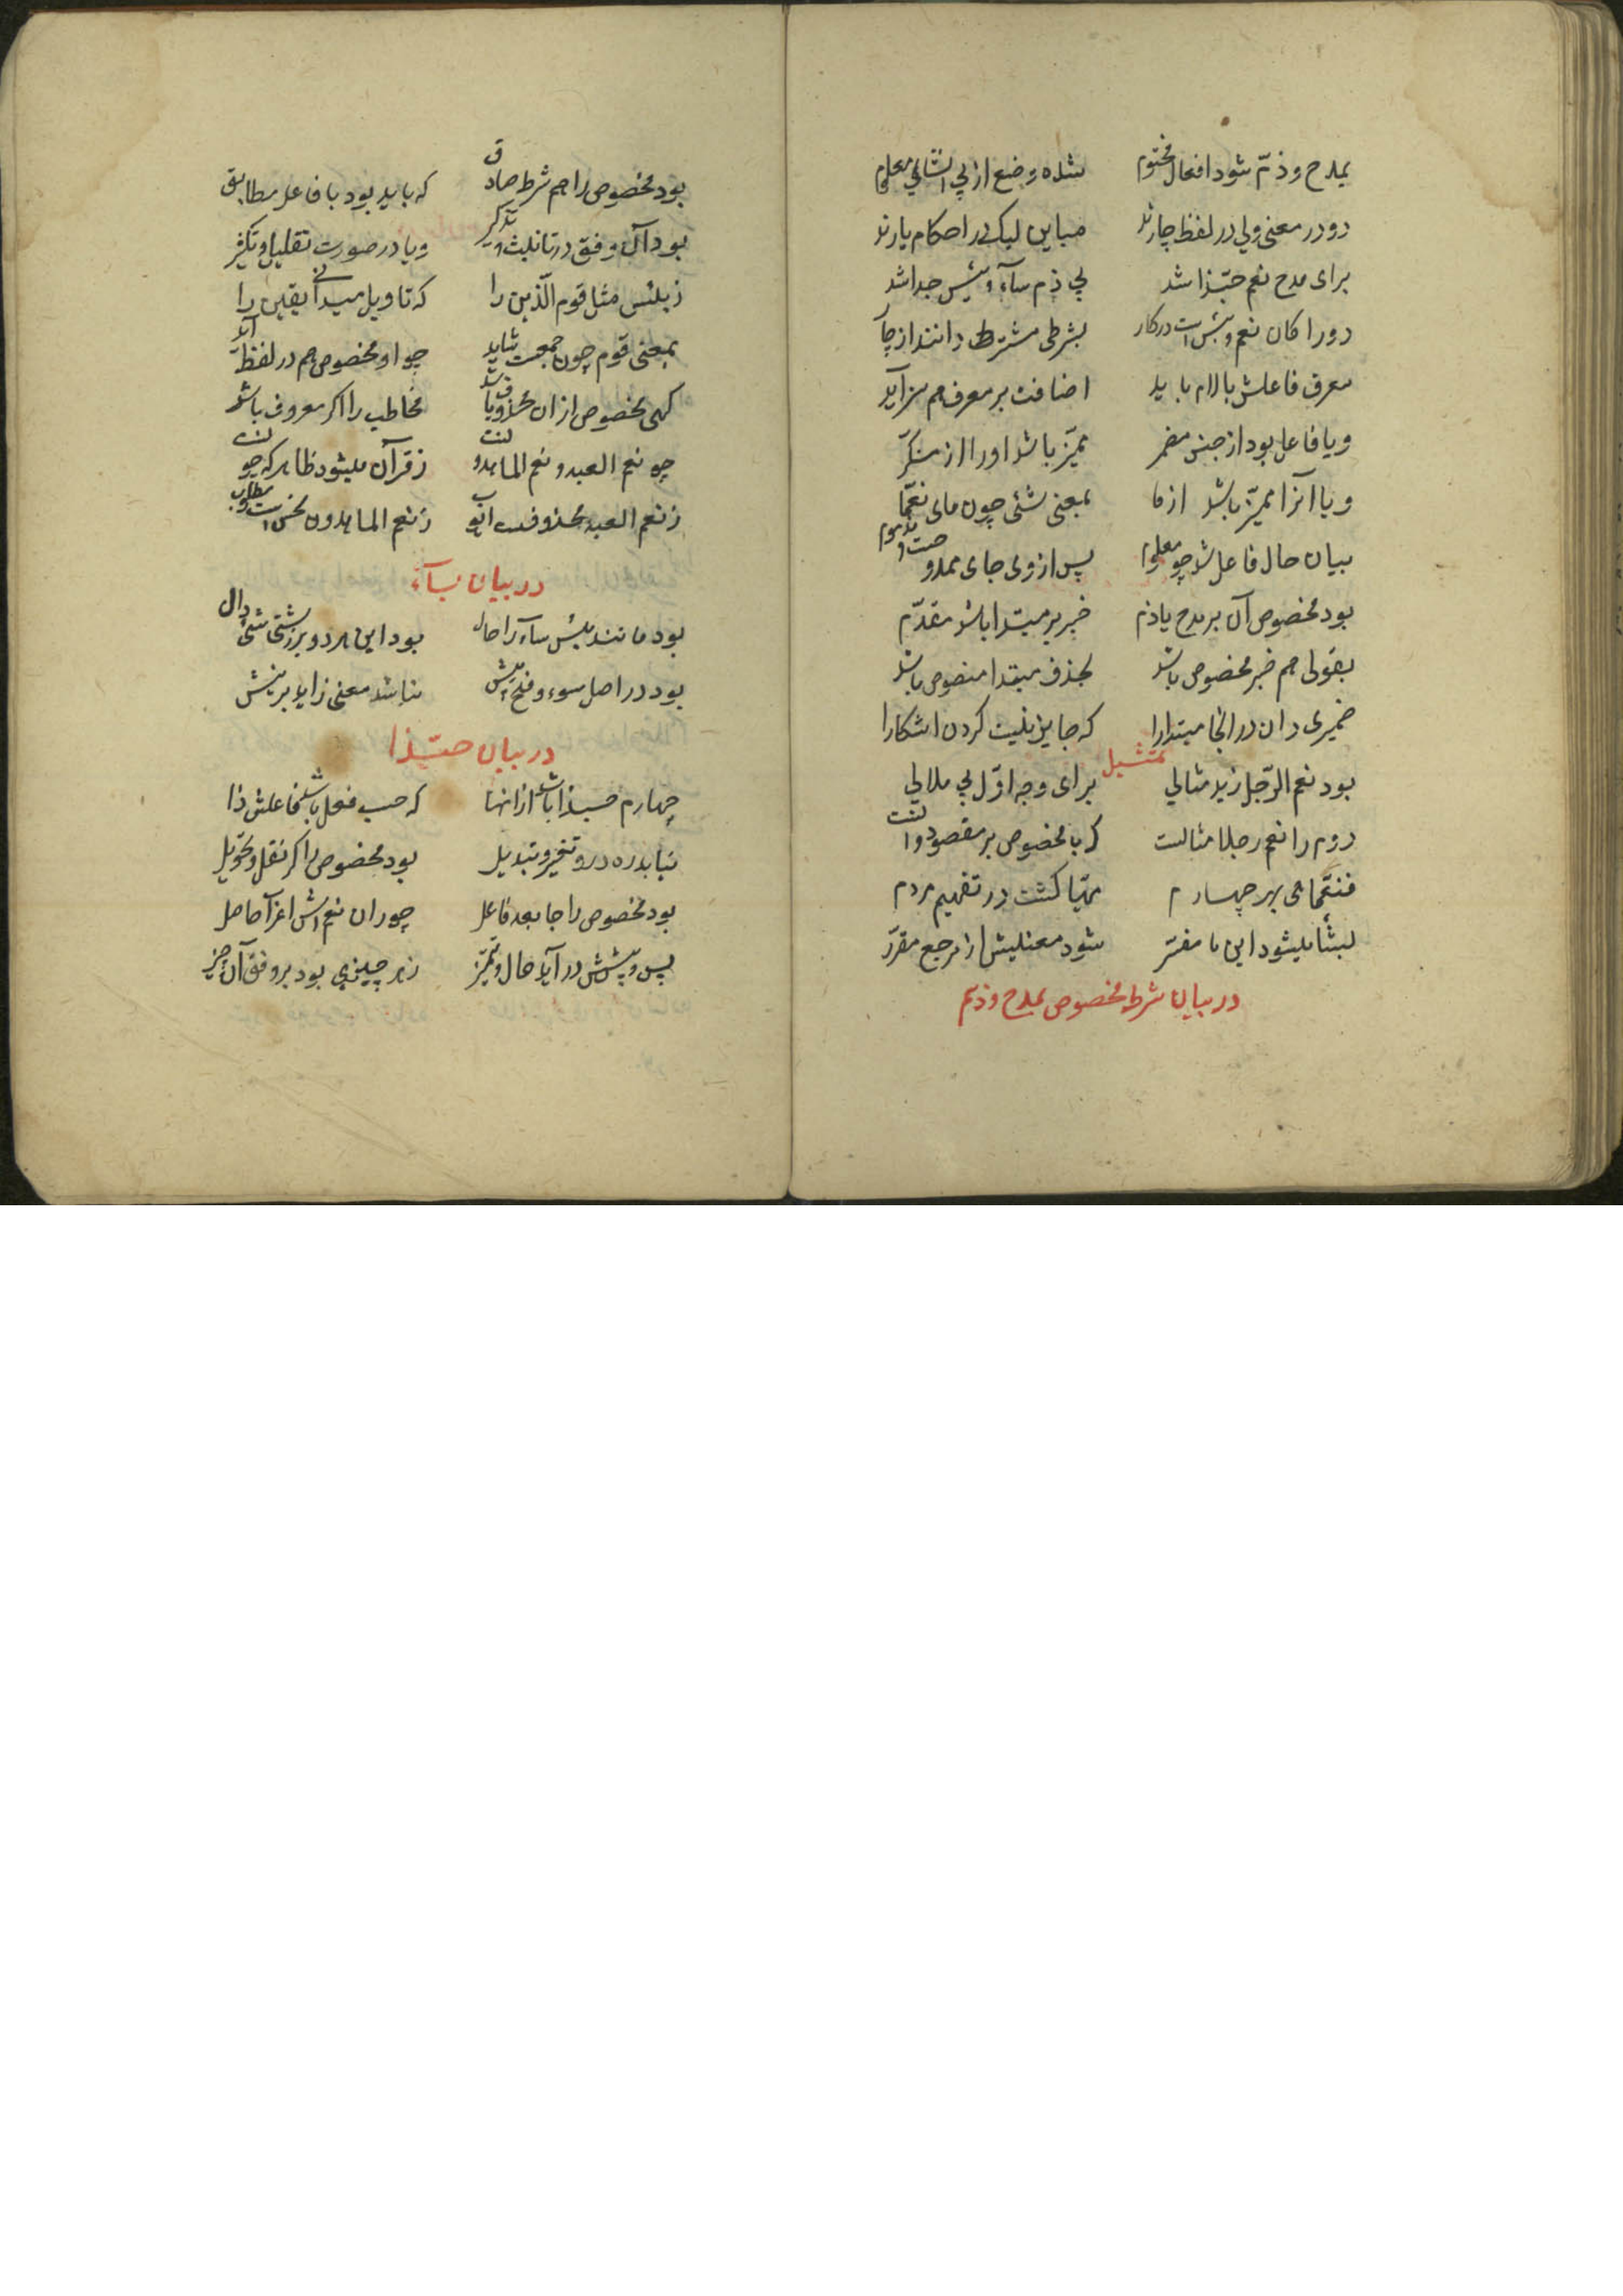 بمدح و ذمّ شود افعال مختوم شده وضع از پی انشای معلوم
دو در معنی ولی در لفظ چارند مباین لیک در احکام یارند
برای مدح نعم حبّذا شد پی ذم ساء و بئس جدا شد
دو را کان نعم و بئس است در کار بشرطی مشترط دانند از چار
معرف فاعلش با لام باید اضافت بر معرف هم سزآید
و یا فاعل بود از جنس مضمر ممیّز باشد او را از منکّر
و یا آنرا ممیّز باشد از ما بمعنی شئی چون مای نعمّا
بیان حال فاعل شد چو معلوم پس از وی جای ممدوحست و مذموم
بود مخصوص آن بر مدح یا ذم خبر بر مبتدا باشد مقدّم
بقولی هم خبر مخصوص باشد بحذف مبتدا منصوص باشد
ضمیری دان در انجا مبتدا را که جایز نیست کردن اشکارا
تمثیل
بود نعم الرّجل زید مثالی برای وجه اوّل بی ملالی
دوم را نعم رجلا مثالست که با مخصوص بر مقصود دالست
فنعمّا هی بهر چهارم مهیّا کشت در تفهیم مردم
لبئسا میشود این ما مفسّر شود معنیش از مرجع مقرّر
در بیان شرط مخصوص بمدح و ذم
بود مخصوص را هم شرط صادق که باید بود با فاعل مطابق
بود آن وفق در تانیث و تذکیر و یا در صورت تقلیل و تکثیر
ز بئس مثل قوم الّذین را که تاویل میدانی یقین را
بمعنی قوم چون جمعست شاید چو او مخصوص هم در لفظ آید
کهی مخصوص ازان محذوف باشد مخاطب را اکر معروف باشد
چو نعم العبد و نعم الماهدونست ز قرآن میشود ظاهر که چونست
ز نعم العبد محذوفست ایوب ز نعم الماهدون نحن است مطلوب
در بیان ساء
بود مانند بئس ساء را حال بود این هر دو بر زشتی شئی دال
بود در اصل سوء و فتح پیش نباشد معنی زاید برینش
در بیان حبّذا
چهارم حبذا باشد ازانها که حب فعل باشد فاعلش ذا
نیابد ره درو تغیر و تبدیل بود مخصوص را کر نقل و تحویل
بود مخصوص را جا بعد فاعل چو دان نعم اش اعرآ حاصل
پس و پیشش در آید حال و تمیّز ز هر چیزی بود بر وفق آن چیز